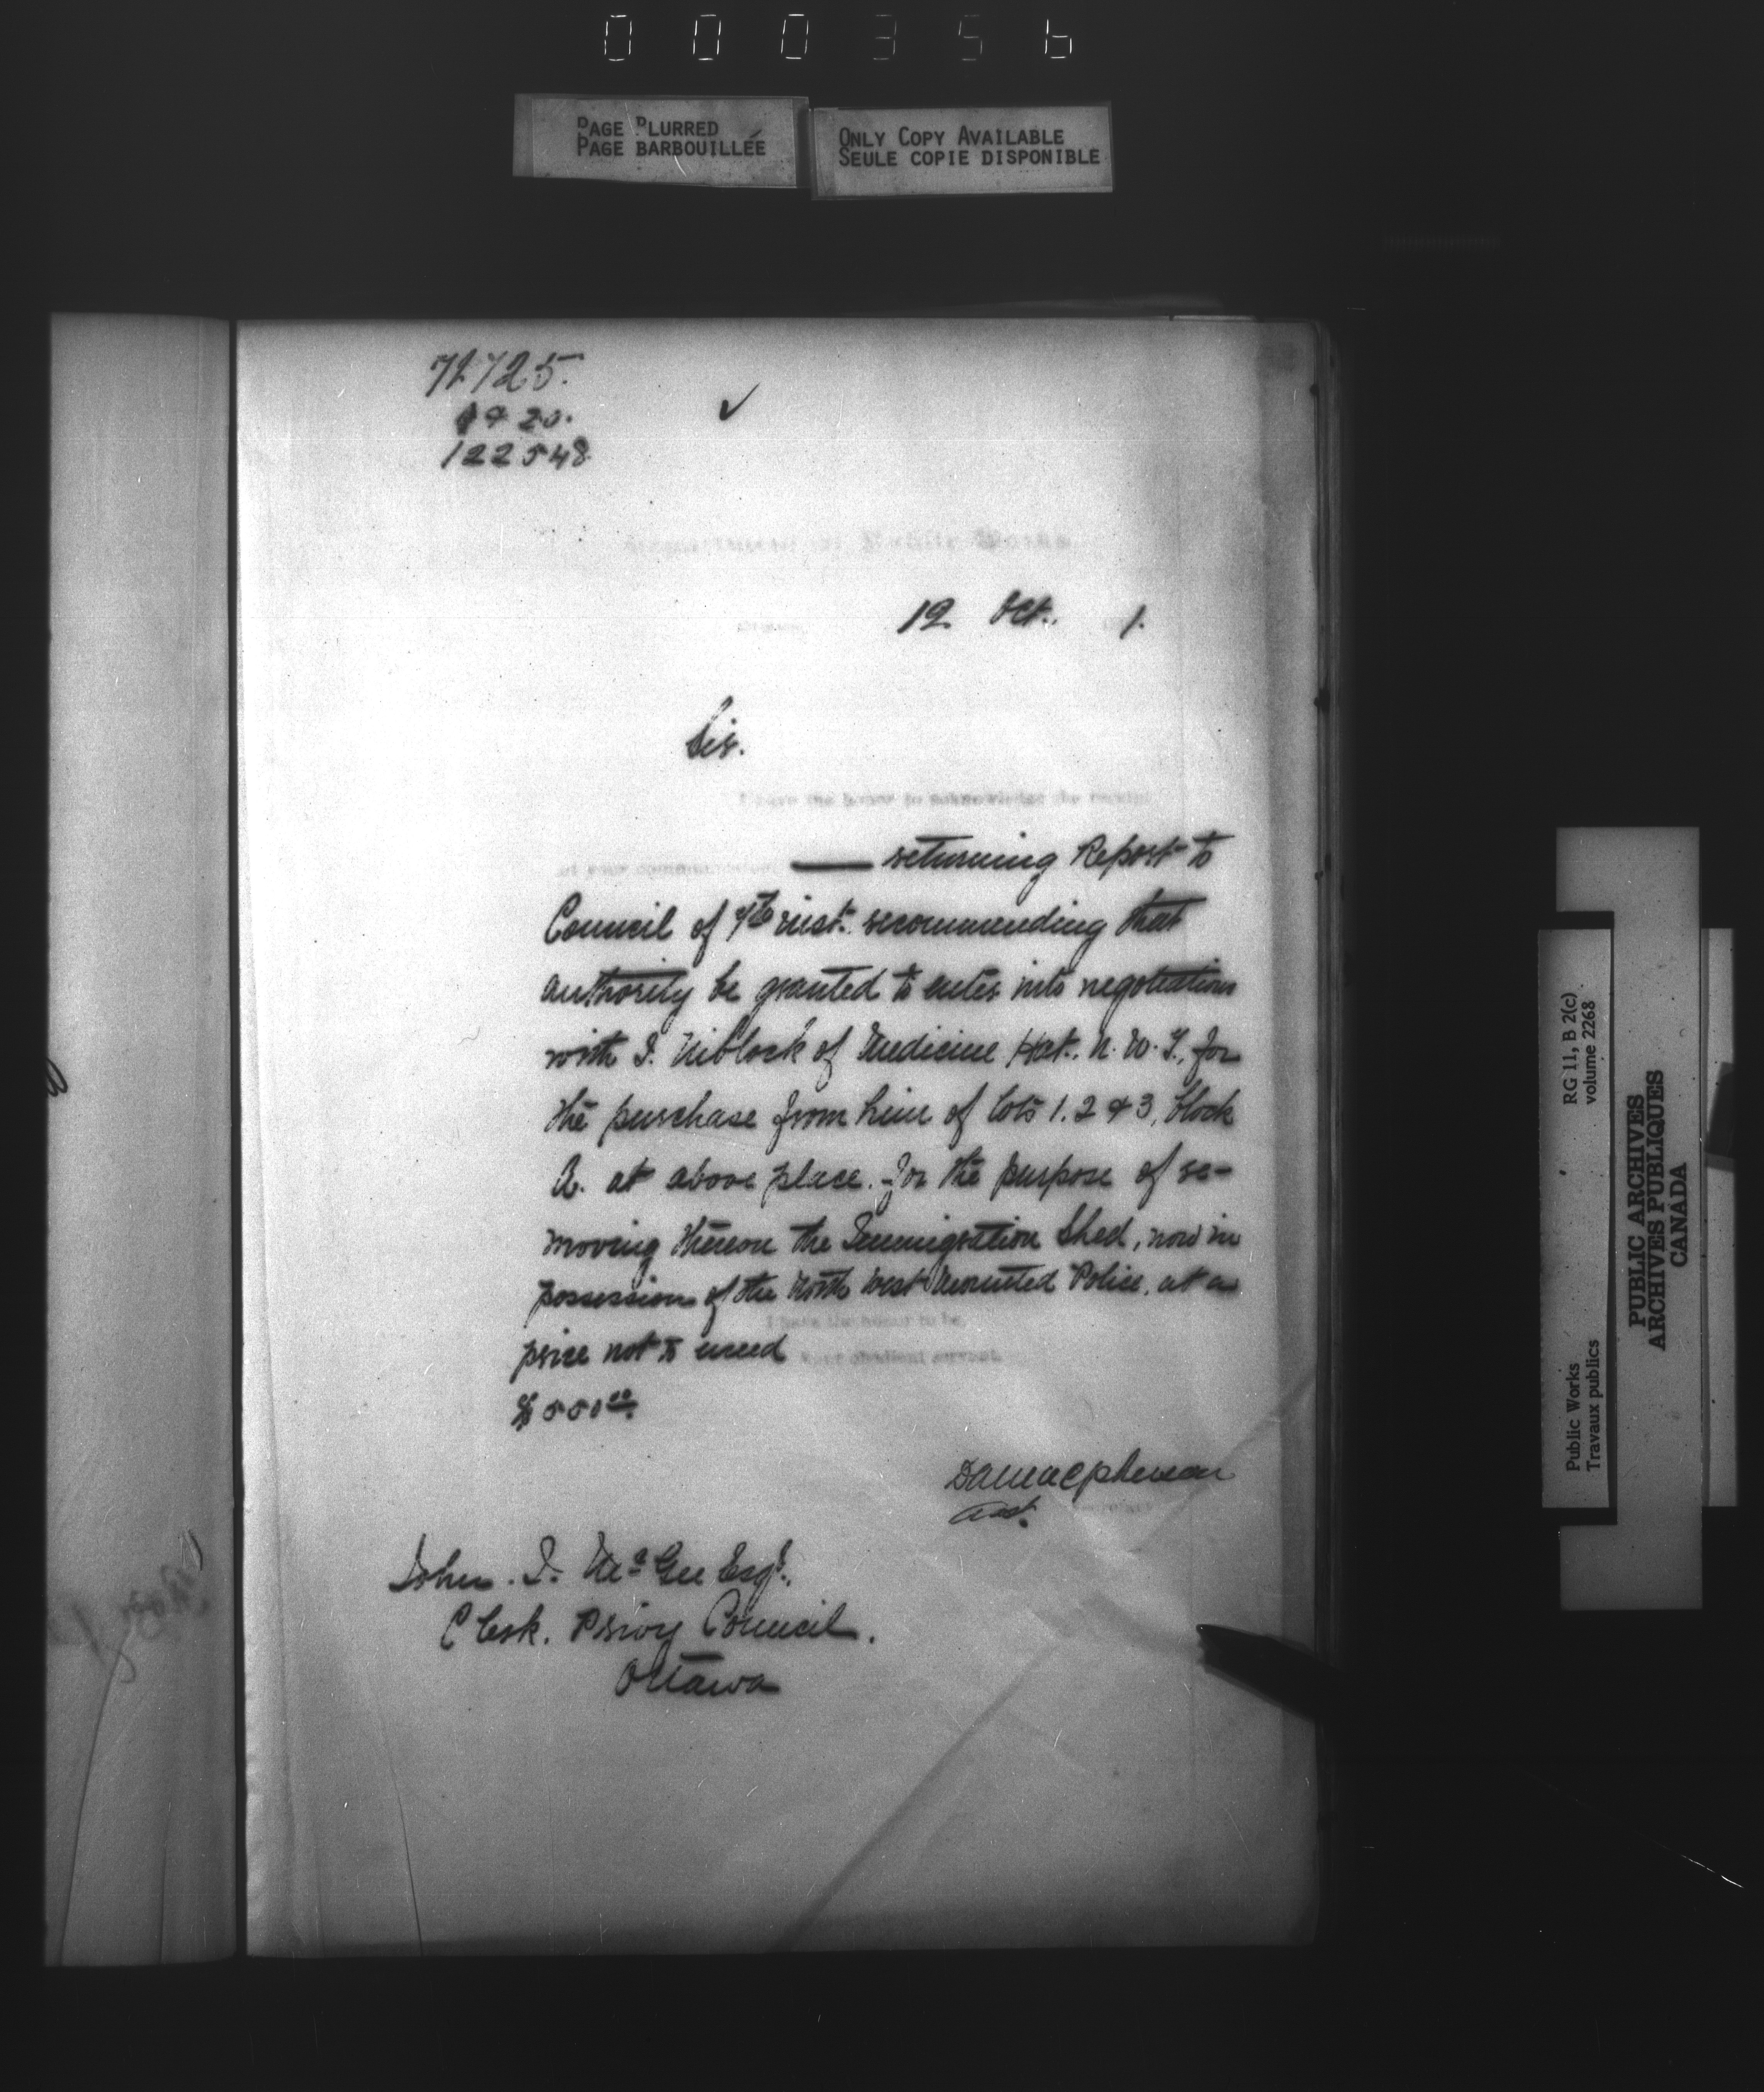 0 0 0 3 5 6
PAGE BLURRED
PAGE BARBOUILLÉE
ONLY COPY AVAILABLE
SEULE COPIE DISPONIBLE
72725.
122548
Department of Public Works
12 Oct. 1.
Sir.
I have the honor to acknowledge the receipt
of your communication returning Report to
Council of inst. recommending that
authority be granted to enter into negotiations
with I. Niblock of Medicine Hat. N. W. T., for
the purchase from him of lots 1. 2 & 3, block
A. at above place. for the purpose of re-
moving thereon the Immigration Shed, now in
possession of the North West Mounted Police, at a
I have the honor to be,
price not to exceed
your obedient servant,
$500.00
D Macpherson
Asst.
John. J. McGee Esqr.
Clerk. Privy Council.
Ottawa
Public Works
Travaux publics
RG 11, B 2(c)
volume 2268
PUBLIC ARCHIVES
ARCHIVES PUBLIQUES
CANADA